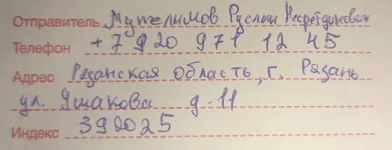 Отправитель Муталимов Руслан
Телефон +7 920 971 12 45
Адрес Рязанская область, г. Рязань
ул. Ушакова д. 11
Индекс 390025